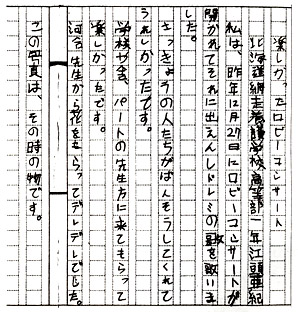 楽しかったロビーコンサート
北海道網走養護学校高等部一年江頭亜紀
私は、昨年12月27日にロビーコンサートが
開かれてそれに出えんしドレミの歌を歌いま
した。
さっきょうの人たちがばんそうしてくれて
うれしかったです。
学校や舎、パートの先生方に来てもらって
楽しかったです。
河合先生から花をもらってデレデレでした。
この写真は、その時の物です。